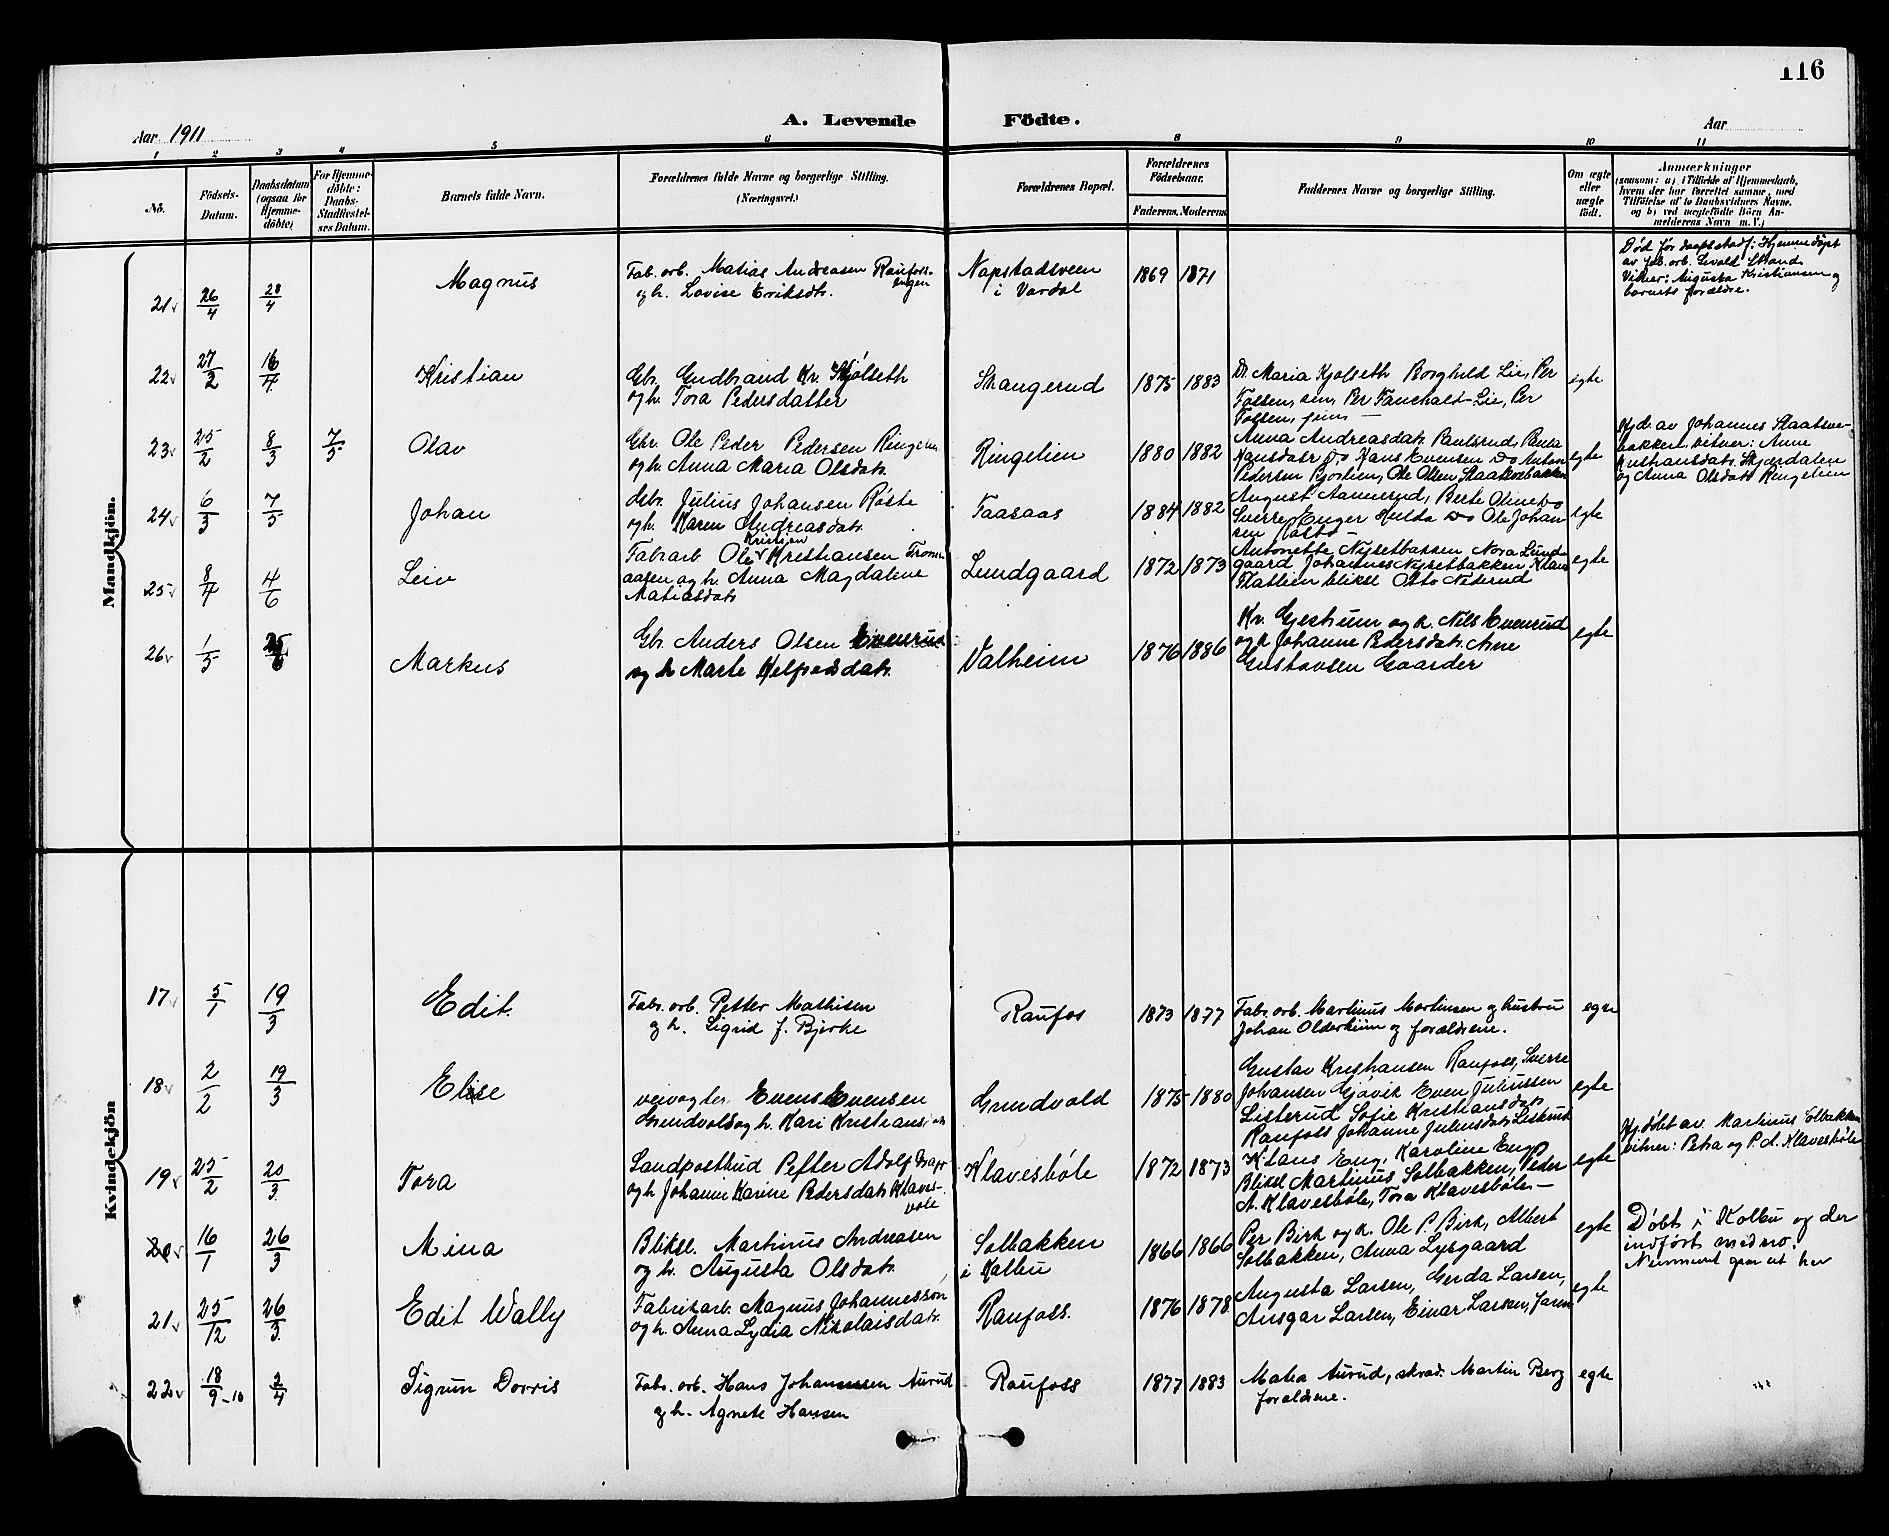 116
A. Levende Födte.
Aar 1911
Aar
1 2 3 4 5 6 8 9 10 11
No.
Födsels-
Datum.
Daabsdatum
(ogsaa for
Hjemme-
döbte)
For Hjemme-
döbte:
Daabs-
Stadfæstel-
ses Datum.
Barnets fulde Navn.
Forældrenes fulde Navne og borgerlige Stilling.
(Næringsvei.)
Forældrenes Bopæl.
Forældrenes
Födselsaar.
Faderens. Moderens.
Faddernes Navne og borgerlige Stilling.
Om ægte
eller
uægte
födt.
Anmærkninger
(saasom: a) i Tilfælde af Hjemmedaab,
hvem der har forrettet samme, med
Tilföielse af to Daabsvidners Navne.
og b) ved uægtefödte Börn An-
melderens Navn m. V.)
Mandkjön.
21 26/4 28/4
Magnus
Fab. arb. Matias Andreasen Raufoss-
engen
og h. Lovise Eriksdtr.
Napstadsveen
i Vardal
1869 1871
Død før daapsstadf: Hjemmedøpt
av fab. arb. Sevald Strand
Vitner: Augusta Kristiansen og
barnets forældre.
22 27/2 16/4
Kristian
Gbr. Gudbrand Kr. Kjölseth
og h. Tora Pedersdatter
Skangerud
1875 1883
Maria Kjolseth Borghild Lie, Per
Tollsen, sen, Per Fauchald-Lie, Per
Tollsen, jun —
egte
23 25/2 8/3 7/5
Olav
Gbr. Ole Peder Pedersen Ringelien
og h. Anna Maria Olsdatr.
Ringelien
1880 1882
Anna Andreasdatr. Paulsrud, Paula
Hansdatr Do Hans Evensen Do Anton
Pedersen Gjøslien, Ole Olsen Staaksvebakken
egte
Hjd. av Johannes Staaksve-
bakken vitner: Anne
Kristiansdatr. Skjerdalen
og Anna Olsdatr Ringelien
24 6/3 7/5
Johan
Julius Johansen Røste
og h. Karen Andreasdatr.
Taasaas
1884 1882
August Aannerud, Berte Oline Do
Sverre Enger Hulda Do Ole Johan-
sen Røste —
egte
25 8/4 4/6
Leiv
Kristian
Fabr.arb. Ole Kristiansen From-
aasen og h. Anna Magdalene
Matiasdatr
Lundgaard
1872 1873
Antonette Nysetbakken, Nora Lund-
gaard Johannes Nysetbakken Klaus
Flatlien bliksl Otto Nederud
egte
26 1/5 25/6
Markus
Gbr. Anders Olsen Evenrud
og h Marte Helpersdatr.
Valheim
1876 1886
Kr. Gjestrum og h. Nils Evenrud
og h Johanne Pedersdatr. Arne
Gustavsen Gaarder
egte
Kvindekjön
17 5/1 19/3
Edit.
Fabr. arb. Petter Mathisen
og h. Sigrid f. Bjerke
Raufos
1873 1877
Fabr. arb. Martinus Martinsen og hustru
Johan Olderheim og forældrene.
egte
18 2/2 19/3
Elise
veivogter Evens Evensen
Grundvold og h. Kari Kristiansdtr
Grundvold
1875 1880
Gustav Kristiansen Raufoss, Sverre
Johansen Gjövik Even Juliussen
Listerud Sofie Kristiansdatr.
Raufoss Johanne Juliusdatr Listerud
egte
19 25/2 20/3
Tora
Landpostbud Petter Adolf
og h Johanne Karine Pedersdatr. Klaves-
bøle
Klavesbøle
1872 1873
Klaus Eng, Karoline Eng
Bliksl Martinus Solbakken, Peder
A. Klavesbøle, Tora Klavesbøle. —
egte
Hj.døbt av Martinus Solbakken
vitner: Petra og P.A. Klavesbøle
20 16/1 26/3
Mina
Bliksl. Martinus Andreasen
og h. Augusta Olsdatr.
Solbakken
i Kolbu
1866 1866
Per Birk og h. Ole P. Birk, Albert
Solbakken, Anna Lysgaard
egte
Døbt i Kolbu og der
indført med no.
Nummeret gaar ut her
21 25/12 26/3
Edit Wally
Fabrikarb. Magnus Johannesson
og h. Anna Lydia Nikolaisdatr.
Raufoss.
1876 1878
Augusta Larsen, Gerda Larsen,
Ansgar Larsen, Einar Larsen,
egte
22 18/9-10 2/4
Sigrun Dorris
Fabr. arb. Hans Johannessen Aurud
og h. Agnete Hansen
Raufoss
1877 1883
Matea Aurud, skræd. Martin Berg
forældrene.
egte